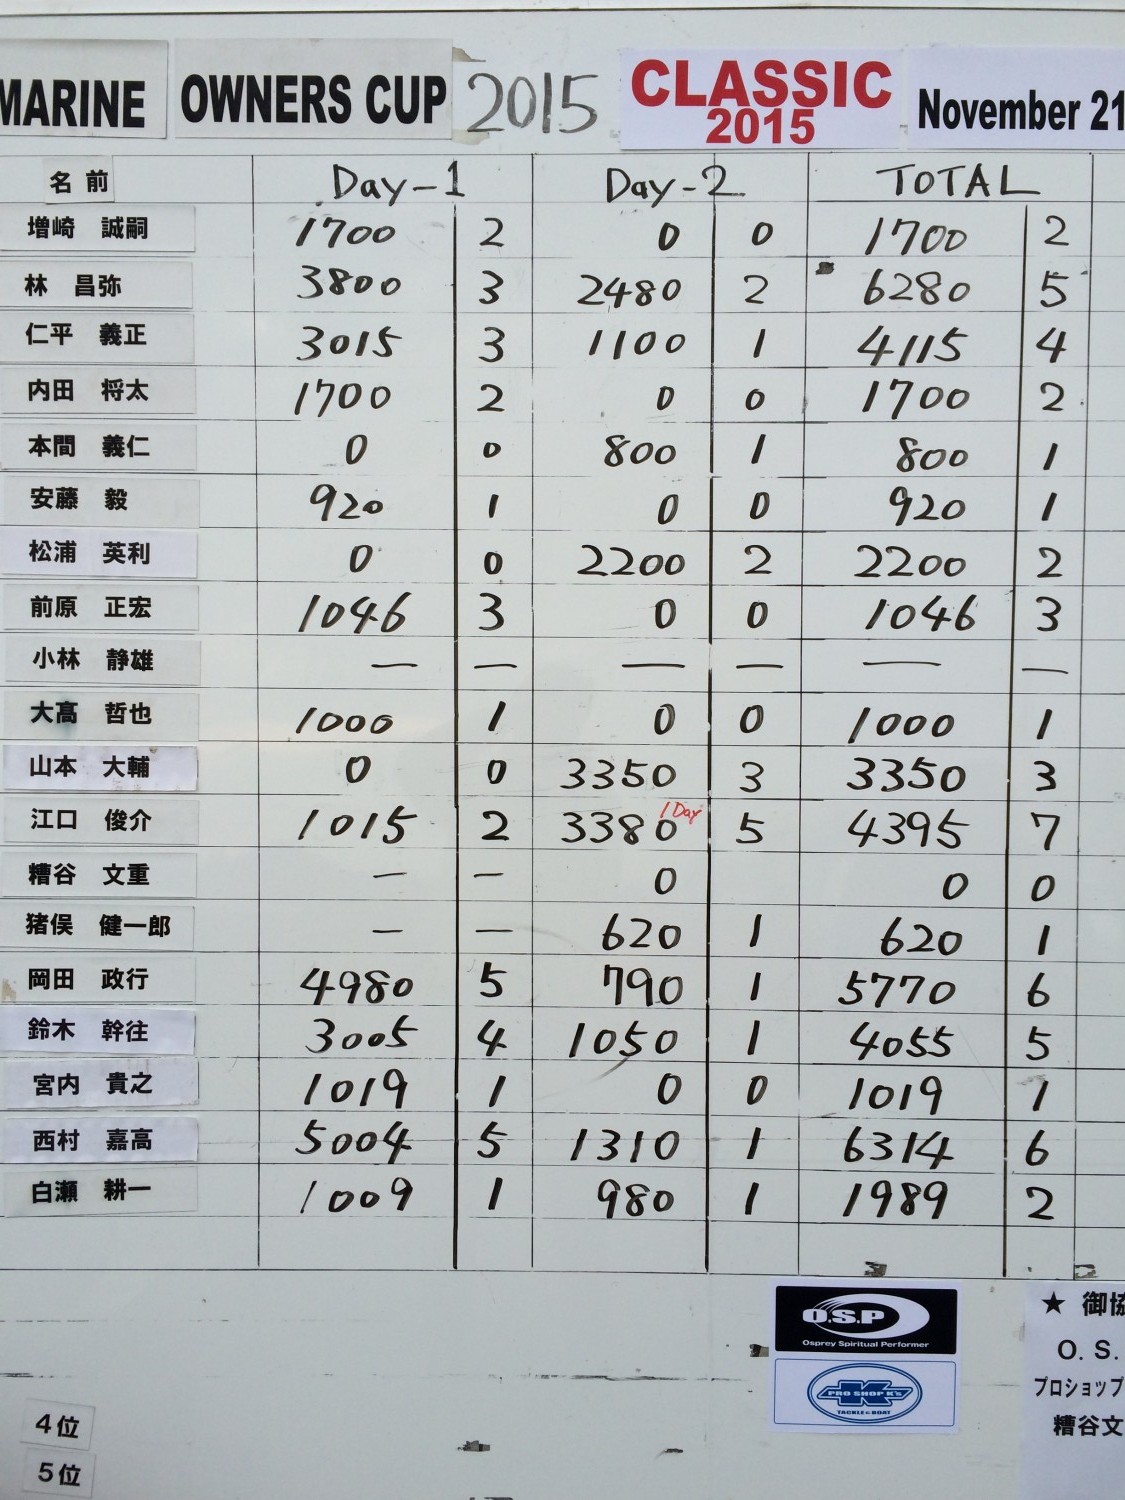 MARINE OWNERS CUP 2015 CLASSIC 2015 November 21
名前 Day-1 Day-2 TOTAL
増崎 誠嗣 1700 2 0 0 1700 2
林 昌弥 3800 3 2480 2 6280 5
仁平 義正 3015 3 1100 1 4115 4
内田 将太 1700 2 0 0 1700 2
本間 義仁 0 0 800 1 800 1
安藤 毅 920 1 0 0 920 1
松浦 英利 0 0 2200 2 2200 2
前原 正宏 1046 3 0 0 1046 3
小林 静雄 — — — — — —
大髙 哲也 1000 1 0 0 1000 1
山本 大輔 0 0 3350 3 3350 3
江口 俊介 1015 2 3380 1Day 5 4395 7
糟谷 文重 — — 0 0 0
猪俣 健一郎 — — 620 1 620 1
岡田 政行 4980 5 790 1 5770 6
鈴木 幹往 3005 4 1050 1 4055 5
宮内 貴之 1019 1 0 0 1019 1
西村 嘉高 5004 5 1310 1 6314 6
白瀬 耕一 1009 1 980 1 1989 2
O.S.P
Osprey Spiritual Performer
K
PRO SHOP K's
TACKLE & BOAT
★ 御協
O. S.
プロショップ
糟谷文
4位
5位